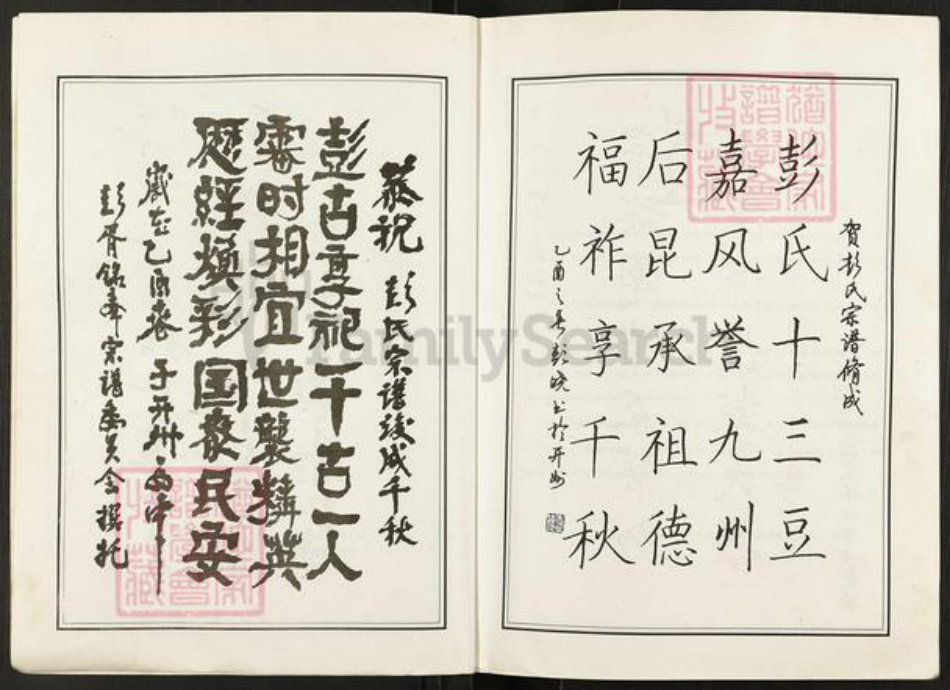 贺彭氏宗谱脩成
彭氏十三豆
嘉风誉九州
后昆承祖德
福祚享千秋
乙酉之春彭晓书於开州
恭祝
彭氏宗谱竣成千秋
彭古享祀一千古一人
霁时相宜世袭精英
历经焕彩国泰民安
岁在乙酉春于开州
彭胥铭奉宗谱委员会撰托
FamilySearch
谱学会
收藏